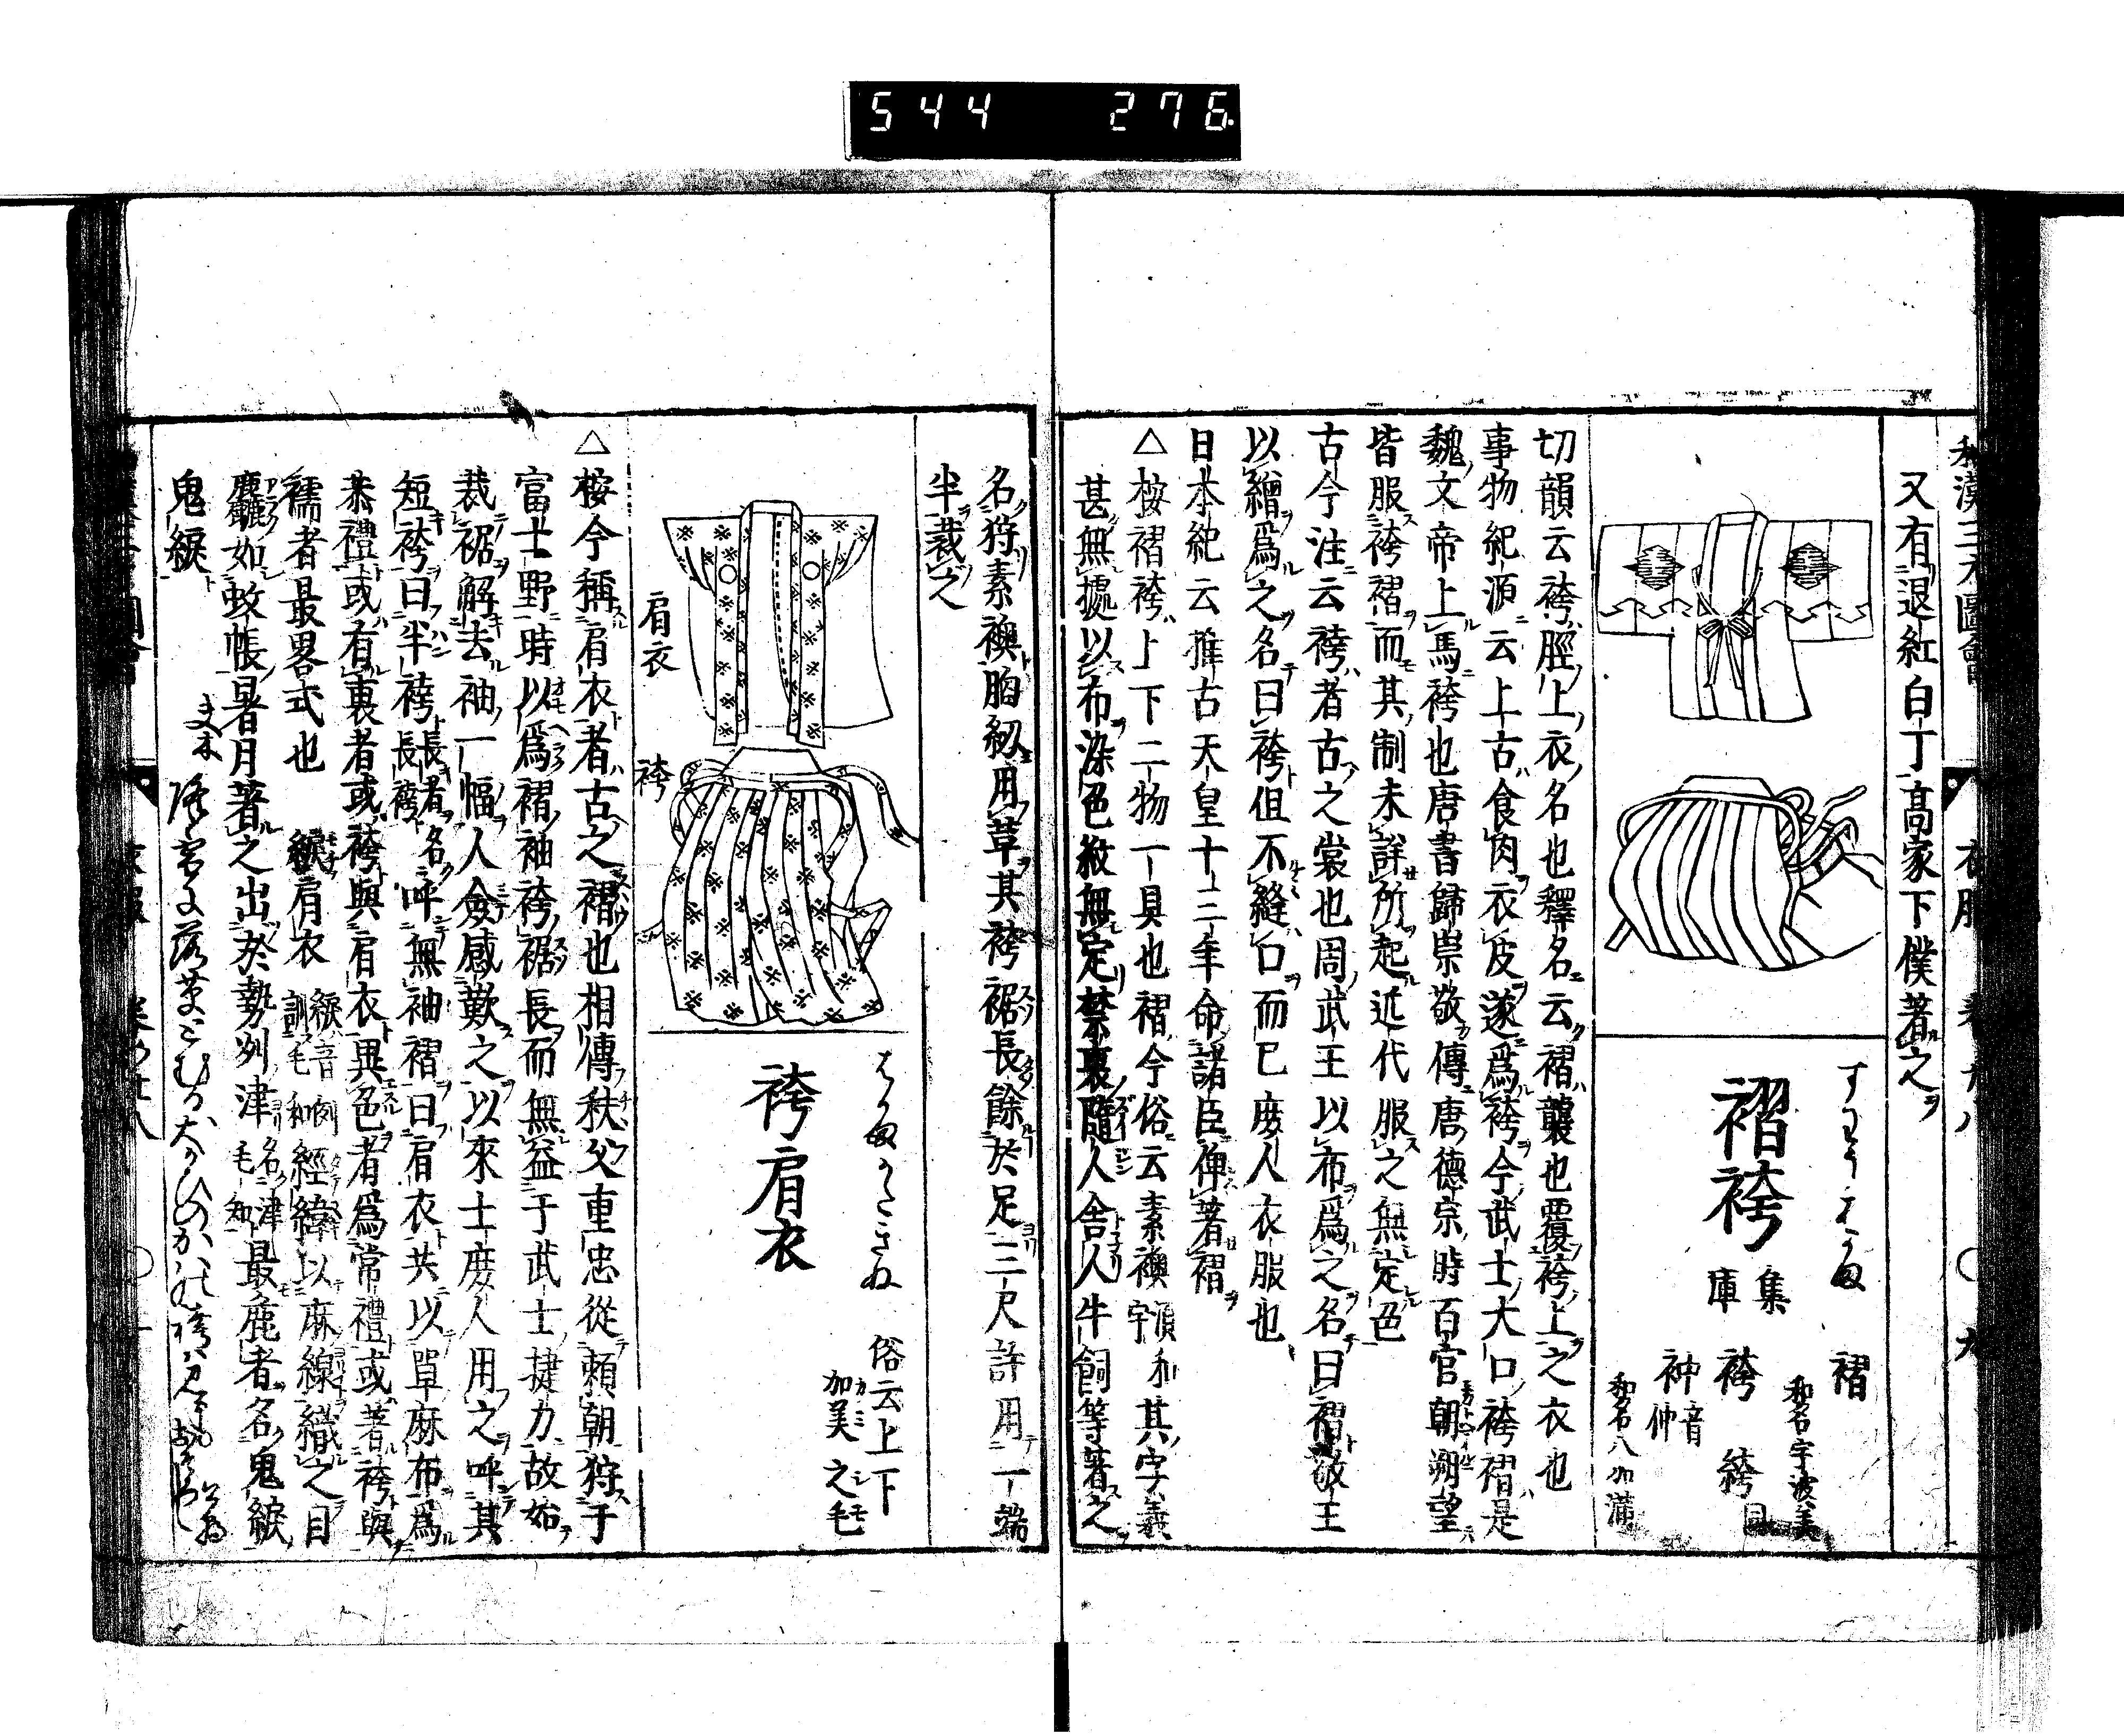 544 276
和漢三才圖會 衣服 卷廿八 ○ 九
又有退紅白丁高家下僕著之
すわうはかま
褶袴
集
庫
褶
和名宇波美
袴 絝 同
衶 音仲
和名八加滿
切韻云袴脛上衣名也釋名云褶襲也覆袴上之衣也
事物紀源云上古食肉衣皮遂爲袴今武士大口袴褶是
魏文帝上馬袴也唐書歸崇敬傳唐德宗時百官朝朔望
皆服袴褶而其制未詳所起近代服之無定色
古今注云袴者古之裳也周武王以布爲之名曰褶敬王
以繒爲之名曰袴但不縫口而已庶人衣服也
日本紀云推古天皇十三年命諸臣俾著褶
△按褶袴上下二物一具也褶今俗云素襖 須和宇 其字義
甚無據以布染色紋無定禁裏隨人舍人牛飼等著之
名狩素襖胸紐用草其袴裾長餘於足三尺許用一端
半裁之
肩衣
袴
はかまかたきぬ
袴肩衣
俗云上下
加美之毛
△按今稱肩衣者古之褶也相傳秩父重忠從頼朝狩于
富士野時以爲褶袖袴裾長而無益于武士捷力故始
裁裾解去袖一幅人僉感歎之以來士庶人用之呼其
短袴曰半袴 長者名長袴 呼無袖褶曰肩衣共以單麻布爲
恭禮或有裏者或袴與肩衣異色者爲常禮或著袴與
襦者最畧式也 綟肩衣 綟音例訓毛知 經緯以麻線織之目
麤如蚊帳暑月著之出於勢州津 名津毛知 最麁者名鬼綟
鬼綟